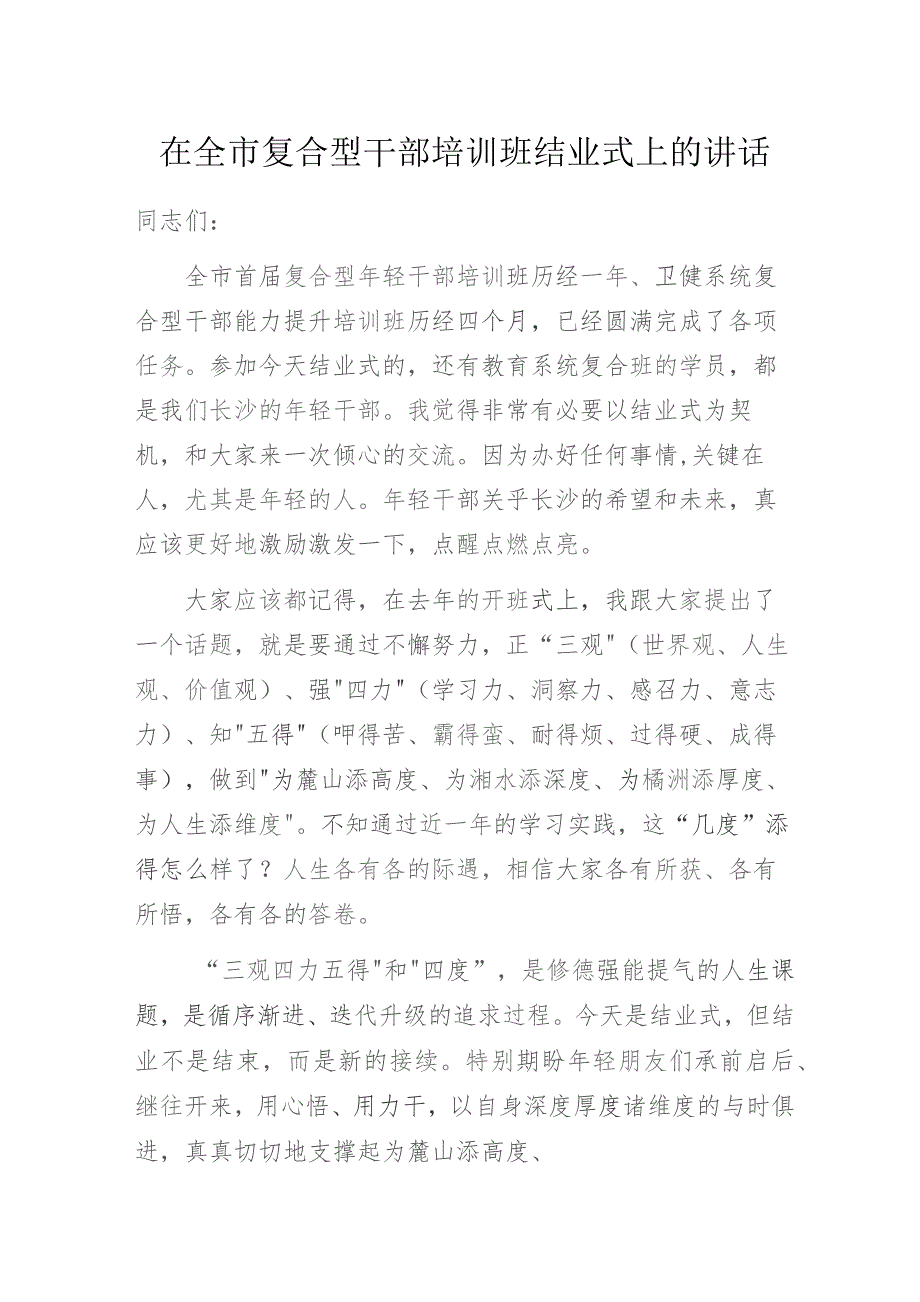 在全市复合型干部培训班结业式上的讲话
同志们：
全市首届复合型年轻干部培训班历经一年、卫健系统复
合型干部能力提升培训班历经四个月，已经圆满完成了各项
任务。参加今天结业式的，还有教育系统复合班的学员，都
是我们长沙的年轻干部。我觉得非常有必要以结业式为契
机，和大家来一次倾心的交流。因为办好任何事情,关键在
人，尤其是年轻的人。年轻干部关乎长沙的希望和未来，真
应该更好地激励激发一下，点醒点燃点亮。
大家应该都记得，在去年的开班式上，我跟大家提出了
一个话题，就是要通过不懈努力，正“三观"（世界观、人生
观、价值观）、强"四力"（学习力、洞察力、感召力、意志
力）、知"五得"（呷得苦、霸得蛮、耐得烦、过得硬、成得
事），做到"为麓山添高度、为湘水添深度、为橘洲添厚度、
为人生添维度"。不知通过近一年的学习实践，这“几度”添
得怎么样了？人生各有各的际遇，相信大家各有所获、各有
所悟，各有各的答卷。
“三观四力五得"和"四度”，是修德强能提气的人生课
题，是循序渐进、迭代升级的追求过程。今天是结业式，但结
业不是结束，而是新的接续。特别期盼年轻朋友们承前启后、
继往开来，用心悟、用力干，以自身深度厚度诸维度的与时俱
进，真真切切地支撑起为麓山添高度、